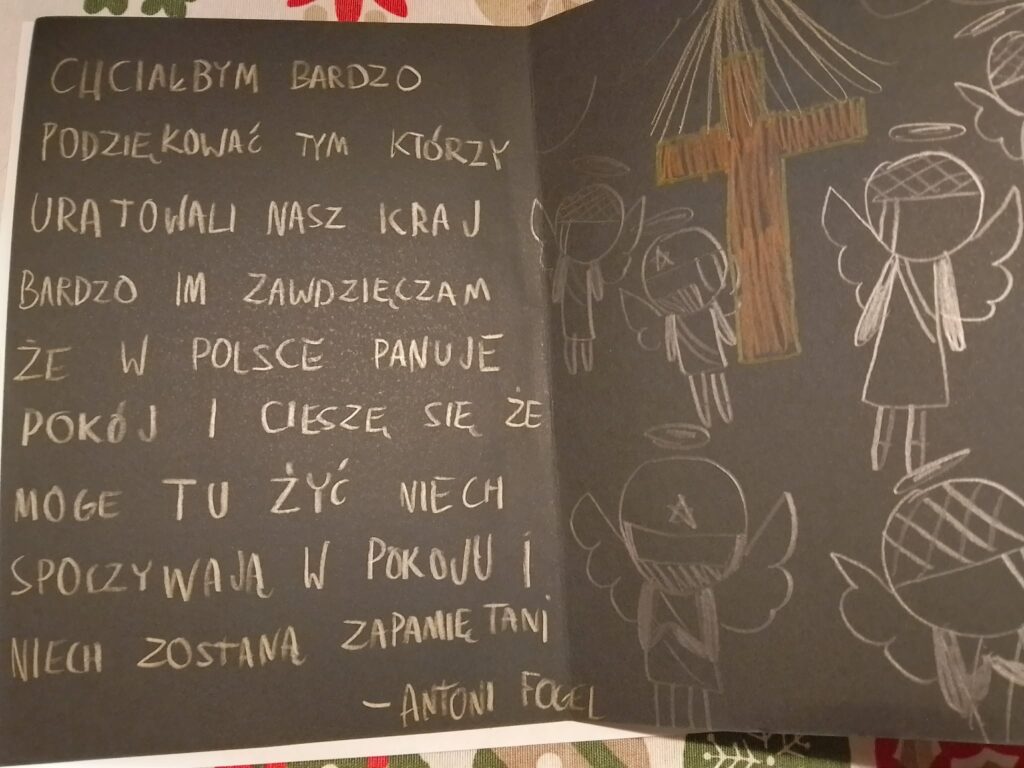 CHCIAŁBYM BARDZO
PODZIĘKOWAĆ TYM KTÓRZY
URATOWALI NASZ KRAJ
BARDZO IM ZAWDZIĘCZAM
ŻE W POLSCE PANUJE
POKÓJ I CIESZĘ SIĘ ŻE
MOGE TU ŻYĆ NIECH
SPOCZYWAJĄ W POKOJU i
NIECH ZOSTANĄ ZAPAMIĘTANi
- ANTONI FOGEL